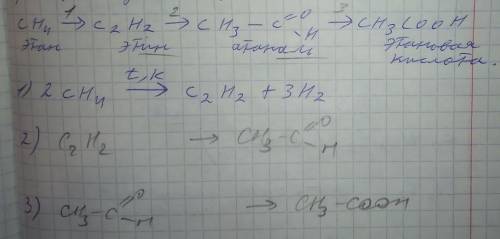 CH₄ 1→ C₂H₂ 2→ CH₃ – C =O –H 3→ CH₃COOH
этан этин этаналь Этановая кислота.
1) 2 CH₄ t, k→ C₂H₂ + 3H₂
2) C₂H₂ → CH₃-C =O -H
3) CH₃-C =O -H → CH₃-COOH